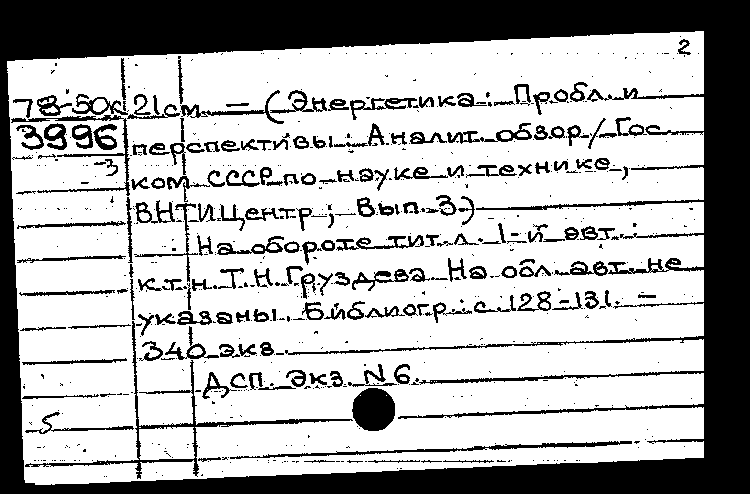 2
78-50к 21 см. – (Энергетика: Пробл. и
3996 перспективы: Аналит. обзор / Гос.
-3 ком. СССР по науке и технике,
ВНТИЦентр; Вып. 3.)
На обороте тит. л. 1-й авт.:
к.т.н. Т.Н. Груздева. На обл. авт. не
указаны. Библиогр.: с. 128-131. –
340 экз.
ДСП. Экз. N 6.
5